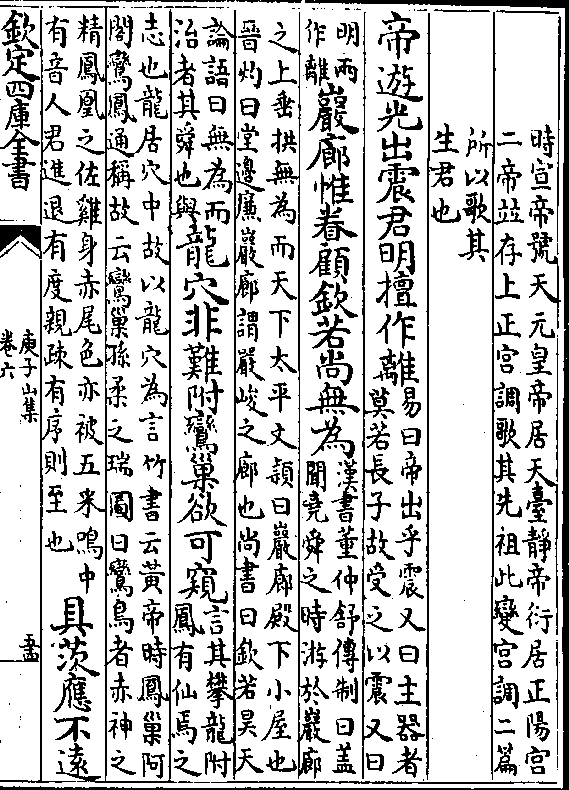 時宣帝號天元皇帝居天臺靜帝衍居正陽宮
二帝竝存上正宮調歌其先祖此變宮調二篇
所以歌其
生君也
帝遊光出震君明擅作離
易曰帝出乎震又曰主器者
莫若長子故受之以震又曰
明兩
作離
巖廊惟眷顧欽若尚無為
漢書董仲舒傳制曰蓋
聞堯舜之時游於巖廊
之上垂拱無為而天下太平文穎曰巖廊殿下小屋也
晉灼曰堂邊廉巖廊謂嚴峻之廊也尚書曰欽若昊天
論語曰無為而
治者其舜也與
龍穴非難附鸞巢欲可窺
言其攀龍附
鳳有仙焉之
志也龍居穴中故以龍穴為言竹書云黃帝時鳳巢阿
閣鸞鳳通稱故云鸞巢孫柔之瑞圖曰鸞鳥者赤神之
精鳳凰之佐雞身赤尾色亦被五采鳴中
有音人君進退有度親疎有序則至也
具茨應不遠
欽定四庫全書
庾子山集
卷六